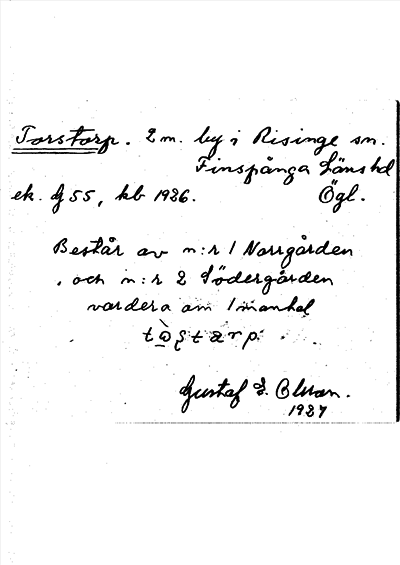 Torstorp. 2 m. by i Risinge sn.
Finspånga Länshd
ek. bl 55, kb 1926. Ögl.
Består av n:r 1 Norrgården
och n:r 2 Södergården
vardera om 1 manhel
Gustaf E.
1927